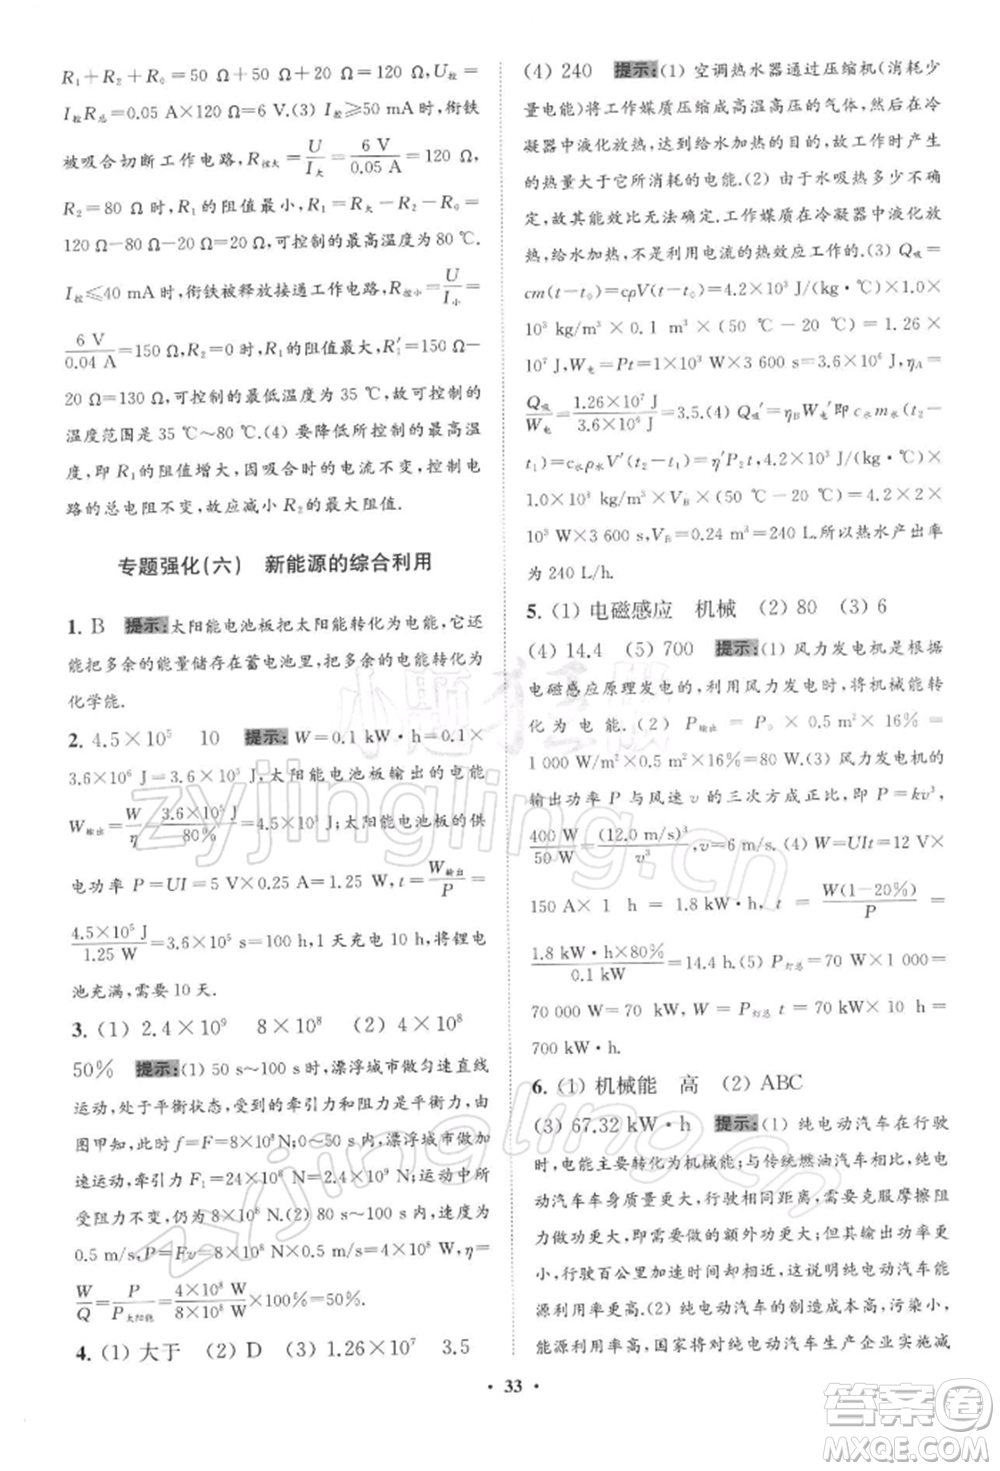 R₁+R₂+R₀=50 Ω+50 Ω+20 Ω=120 Ω,U=
I控R总=0.05 A×120 Ω=6 V.(3) I控≥50 mA时,衔铁
被吸合切断工作电路,R控大=U/I大=6 V/0.05 A=120 Ω,
R₂=80 Ω时,R₁的阻值最小,R₁=R大-R₂-R₀=
120 Ω-80 Ω-20 Ω=20 Ω,可控制的最高温度为80 ℃.
I控≤40 mA时,衔铁被释放接通工作电路,R控小=U/I小=
6 V/0.04 A=150 Ω,R₂=0时,R₁的阻值最大,R₁′=150 Ω-
20 Ω=130 Ω,可控制的最低温度为35 ℃,故可控制的
温度范围是35 ℃~80 ℃.(4) 要降低所控制的最高温
度,即R₁的阻值增大,因吸合时的电流不变,控制电
路的总电阻不变,故应减小R₂的最大阻值.
专题强化(六) 新能源的综合利用
1. B 提示:太阳能电池板把太阳能转化为电能,它还
能把多余的能量储存在蓄电池里,把电能转化为
化学能.
2. 4.5×10⁵ 10 提示:W=0.1 kW·h=0.1×
3.6×10⁶ J=3.6×10⁵ J;太阳能电池板输出的电能
W输出=W/η=3.6×10⁵ J/80%=4.5×10⁵ J;太阳能电池板的供
电功率P=UI=5 V×0.25 A=1.25 W,t=W输出/P=
4.5×10⁵ J/1.25 W=3.6×10⁵ s=100 h,1天充电10 h,将锂电
池充满,需要10天.
3. (1) 2.4×10⁹ 8×10⁸ (2) 4×10⁸
50% 提示:(1) 50 s~100 s时,漂浮城市做匀速直线
运动,处于平衡状态,受到的牵引力和阻力是平衡力,
由图甲知,此时f=F=8×10⁸ N;漂浮城市做匀速直线
运动时,牵引力F₁=f=8×10⁸ N;运动中所
受阻力不变,仍为8×10⁸ N.(2) 漂浮城市的速度为
0.5 m/s,P=Fv=8×10⁸ N×0.5 m/s=4×10⁸ W;η=
W/Q=P/P太阳能=4×10⁸ W/8×10⁸ W×100%=50%.
4. (1) 大于 (2) D (3) 1.26×10⁷ 3.5
(4) 240 提示:(1) 空调热水器通过压缩机(消耗少
量电能)将工作媒质压缩成高温高压的气体,然后在冷
凝器中液化放热,达到给水加热的目的,故工作时产生
的热量大于它所消耗的电能.(2) 由于水吸热多少不确
定,故其能效比无法确定.工作媒质在冷凝器中液化放
热,给水加热,不是利用电流的热效应工作的.(3) Q吸=
cm(t-t₀)=cρV(t-t₀)=4.2×10³ J/(kg·℃)×1.0×
10³ kg/m³×0.1 m³×(50 ℃-20 ℃)=1.26×
10⁷ J,W电=Pt=1×10³ W×3 600 s=3.6×10⁶ J,ηA=
Q吸/W电=1.26×10⁷ J/3.6×10⁶ J=3.5.(4) Q吸′=ηBW电′即c水m水(t₂-
t₁)=c水ρ水V′(t₂-t₁)=η′P₂t,4.2×10³ J/(kg·℃)×
1.0×10³ kg/m³×VB×(50 ℃-20 ℃)=4.2×2×
10³ W×3 600 s,VB=0.24 m³=240 L.所以热水产出率
为240 L/h.
5. (1) 电磁感应 机械 (2) 80 (3) 6
(4) 14.4 (5) 700 提示:(1) 风力发电机是根据
电磁感应原理发电的,利用风力发电时,将机械能转
化为电能.(2) P输出=P₀×0.5 m²×16%=
1 000 W/m²×0.5 m²×16%=80 W.(3) 风力发电机的
输出功率P与风速v的三次方成正比,即P=kv³,
400 W/50 W=(12.0 m/s)³/v³,v=6 m/s.(4) W=UIt=12 V×
150 A×1 h=1.8 kW·h,t=W(1-20%)/P=
1.8 kW·h×80%/0.1 kW=14.4 h.(5) P灯总=70 W×1 000=
70 000 W=70 kW,W=P灯总t=70 kW×10 h=
700 kW·h.
6. (1) 机械能 高 (2) ABC
(3) 67.32 kW·h 提示:(1) 纯电动汽车在行驶
时,电能主要转化为机械能;与传统燃油汽车比,纯电
动汽车车身质量更大,行驶相同距离,需要克服摩擦阻
力做功更大,做的额外功更大;但其输出功率却更大,
且行驶百公里加速时间却相近,这说明纯电动汽车的能
源利用率更高.(2) 纯电动汽车的制造成本高,污染小,
能源利用率高,国家将对纯电动汽车生产企业实施减
· 33 ·
小题狂做
zyjingling.cn
zyjingling.cn
答案圈
MXQE.COM